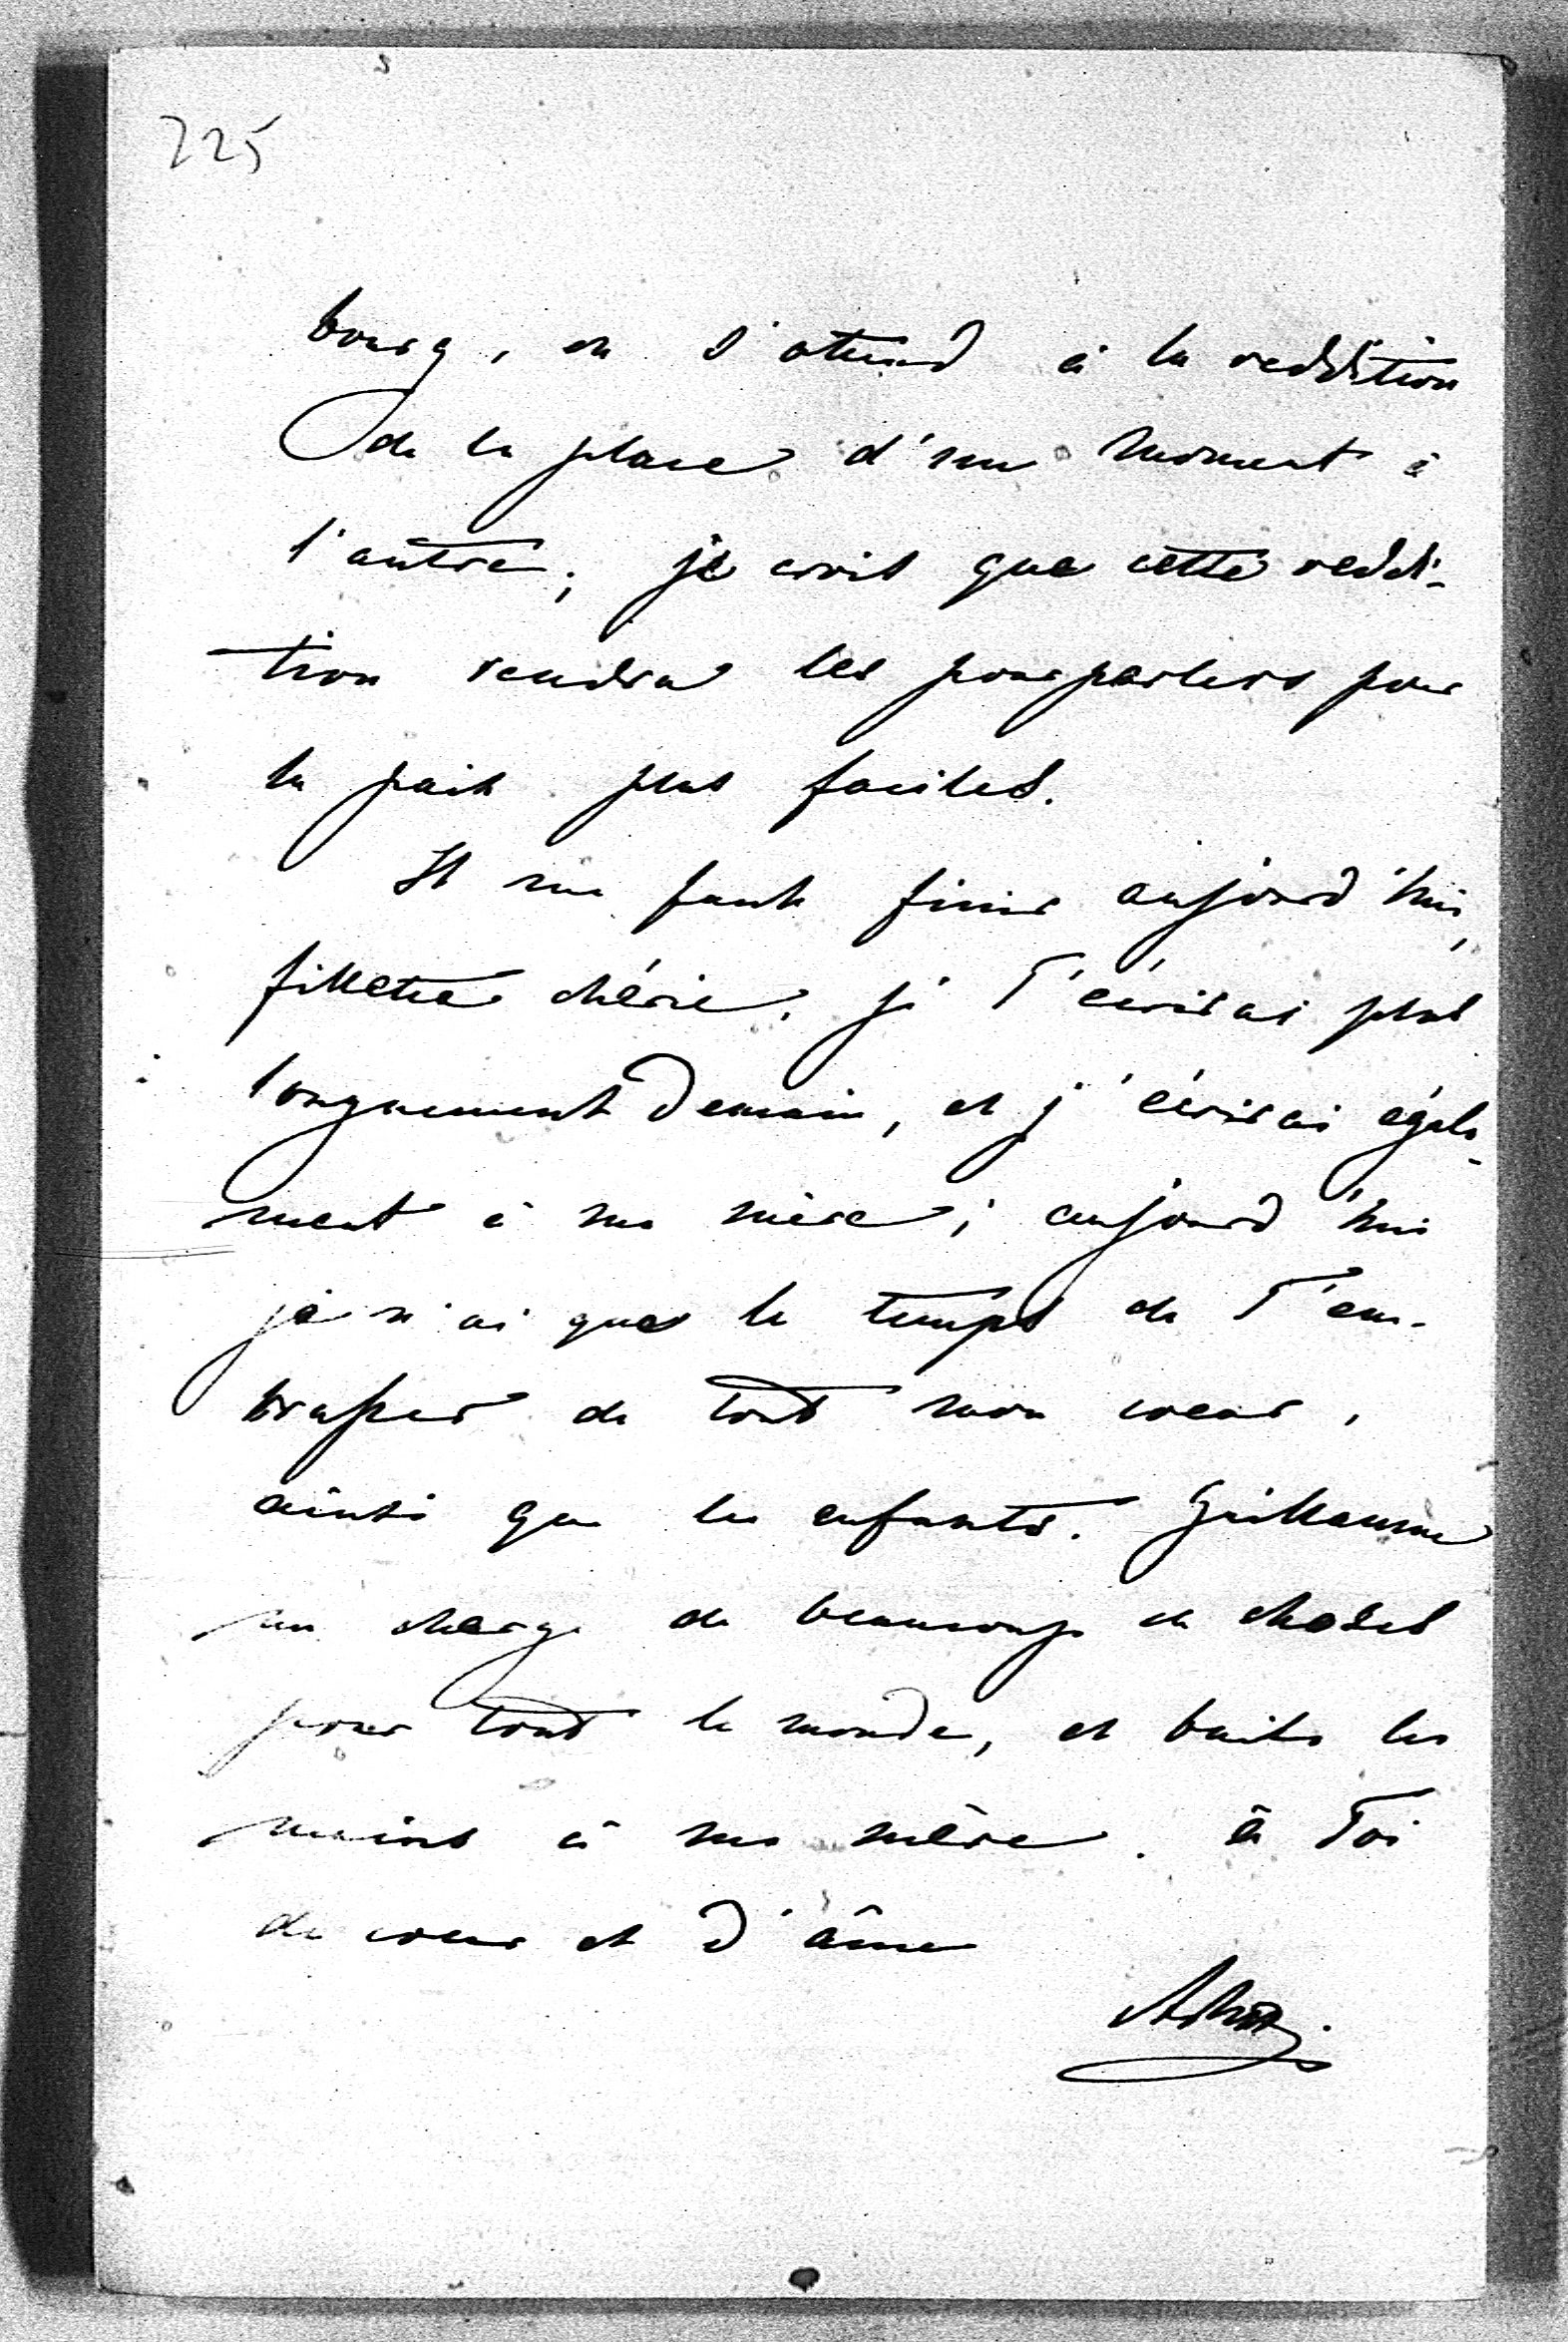 225
bourg, on s'atend à la reddition
de la place d'un moment à
l'autre; je crois que cette reddi-
tion rendra les pourparlers pour
la paix plus faciles.
Il me faut finir aujourd'hui,
fillette chérie, je T'écrirai plus
longuement demain, et j'écrirai égale-
ment à ma mère; aujourd'hui
je n'ai que le temps de T'em-
brasser de tout mon coeur,
ainsi que les enfants. Guillaume
me charge de beaucoup de choses
pour tout le monde, et baise les
mains à ma mère. à Toi
de coeur et d'âme